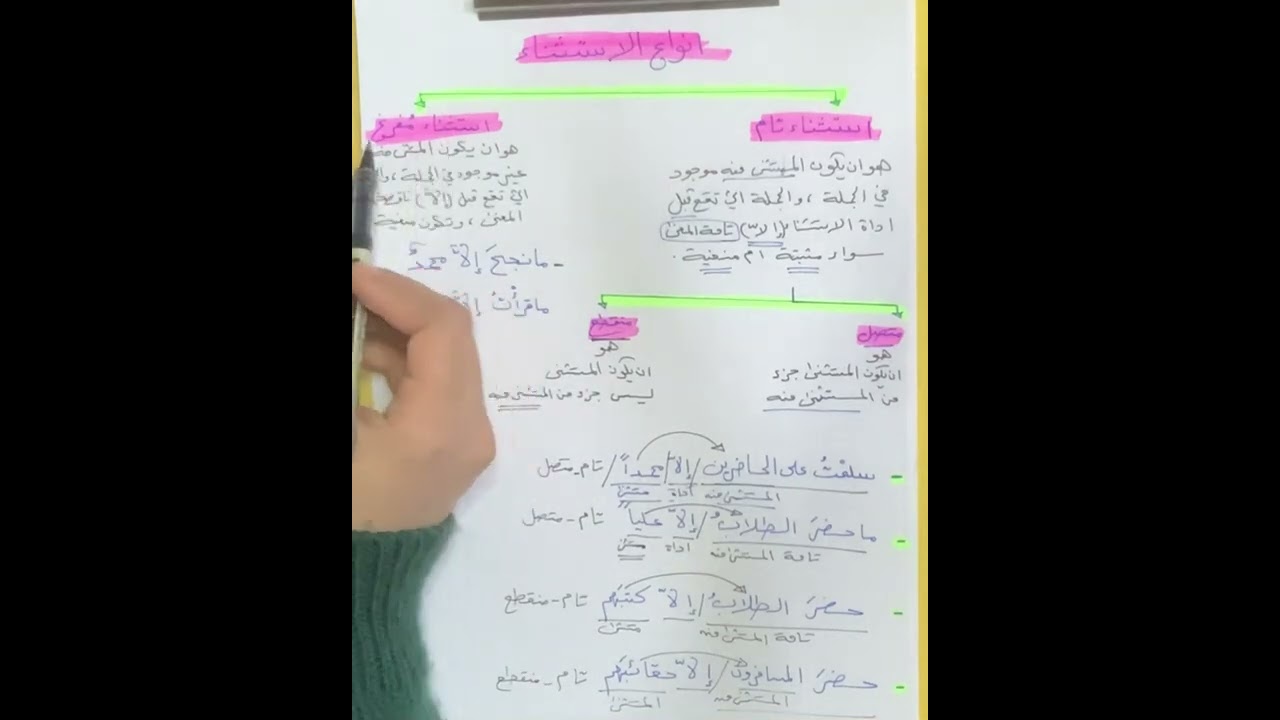 انواع الاستثناء
استثناء تام
هو ان يكون المستثنى منه موجود
في الجملة ، والجملة التي تقع قبل
اداة الاستثناء (إلّا) تامة المعنى
سواء مثبتة ام منفية .
استثناء مُفرغ
هو ان يكون المستثنى منه
غير موجود في الجملة ،
التي تقع قبل (إلّا)
المعنى ، وتكون منفية
- ما نجحَ إلّا محمدٌ
ما قرأتُ
متصل
هو
ان يكون المستثنى جزء
من المستثنى منه
منقطع
هو
ان يكون المستثنى
ليس جزء من المستثنى منه
- سلمْتُ على الحاضرين / إلّا / محمداً / تام - متصل
المستثنى منه اداة مستثنى
- ما حضرَ الطلابُ / إلّا علياً تام - متصل
تامة المستثنى منه اداة مستثنى
- حضرَ الطلابُ / إلّا كتبَهم تام - منقطع
تامة المستثنى منه مستثنى
- حضرَ المسافرون / إلّا حقائبَهم تام - منقطع
المستثنى منه المستثنى